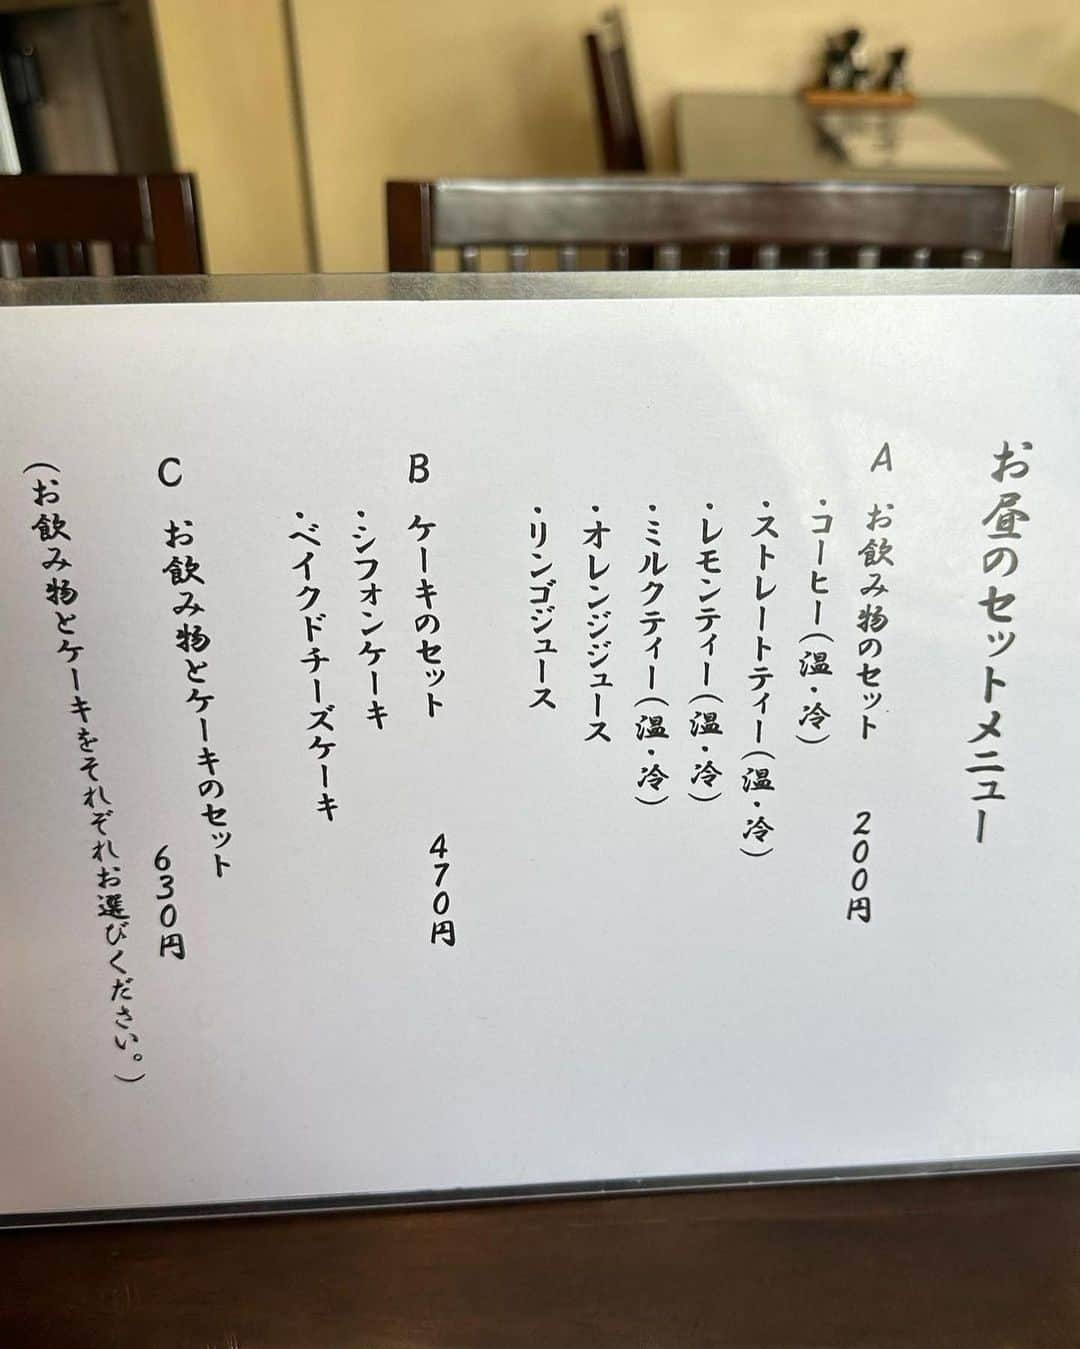 お昼のセットメニュー
A お飲み物のセット 200円
・コーヒー(温・冷)
・ストレートティー(温・冷)
・レモンティー(温・冷)
・ミルクティー(温・冷)
・オレンジジュース
・リンゴジュース
B ケーキのセット 470円
・シフォンケーキ
・ベイクドチーズケーキ
C お飲み物とケーキのセット
630円
(お飲み物とケーキをそれぞれお選びください。)